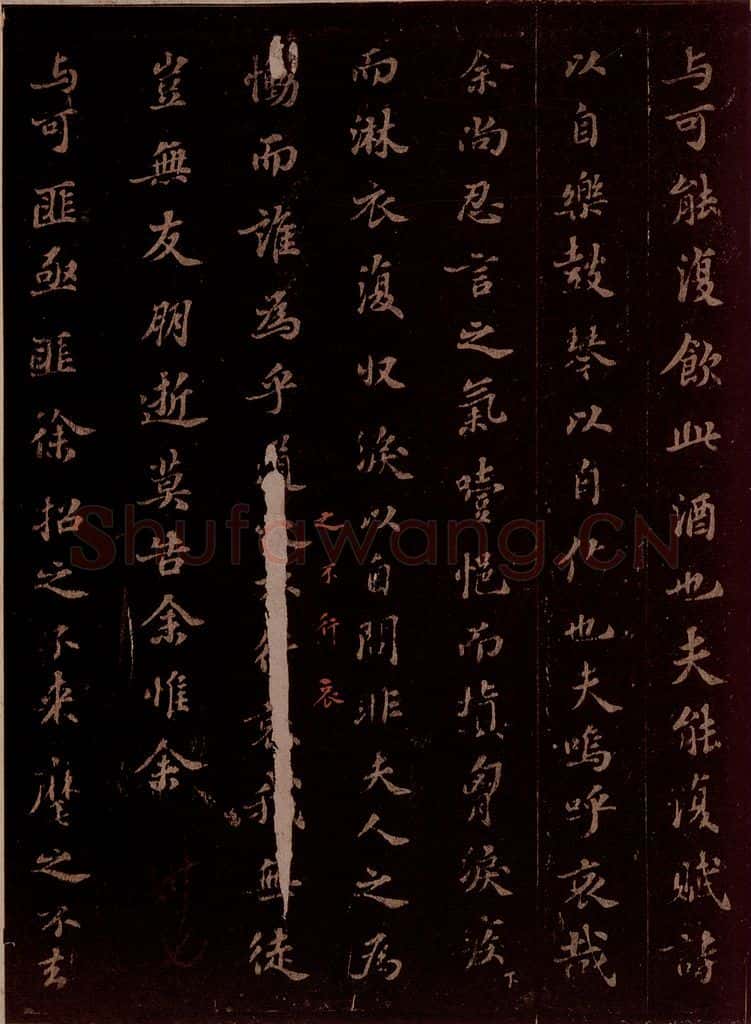 与可能復飲此酒也夫能復賦詩
以自樂鼓琴以自化也夫嗚呼哀哉
余尚忍言之氣噎悒而填胷淚疾下
而淋衣復收淚以自問非夫人之為
慟而誰為乎道之不行哀我無徒
之不行哀
豈無友朋逝莫告余惟余
与可匪亟匪徐招之不来麾之不去
Shufawang.CN